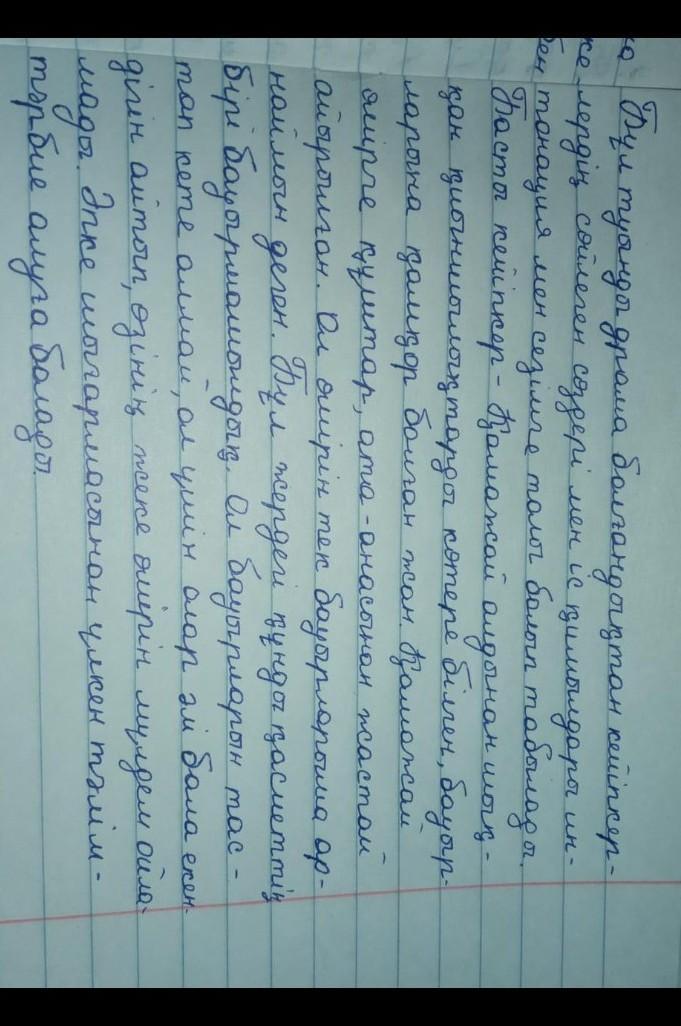 Бұл туынды драма болғандықтан кейіпкер-
лердің сөйлеген сөздері мен іс қимылдары ин-
тонация мен сезімге толы болып табылады.
Басты кейіпкер - Қамажай алдынан шық-
қан қиыншылықтарды көтере білген, бауыр-
ларына қамқор болған жан. Қамажай
өмірге құштар, ата-анасынан жастай
айырылған. Ол өмірін тек бауырларыма ар-
наймын деген. Бұл жердегі құнды қасметтің
бірі бауырмашылдық. Ол бауырларын тас-
тап кете алмай, ол үшін олар әлі бала екен-
дігін айтып, өзінің жеке өмірін мүлдем ойла-
мады. Әпке шығармасынан үлкен тәлім-
тәрбие алуға болады.